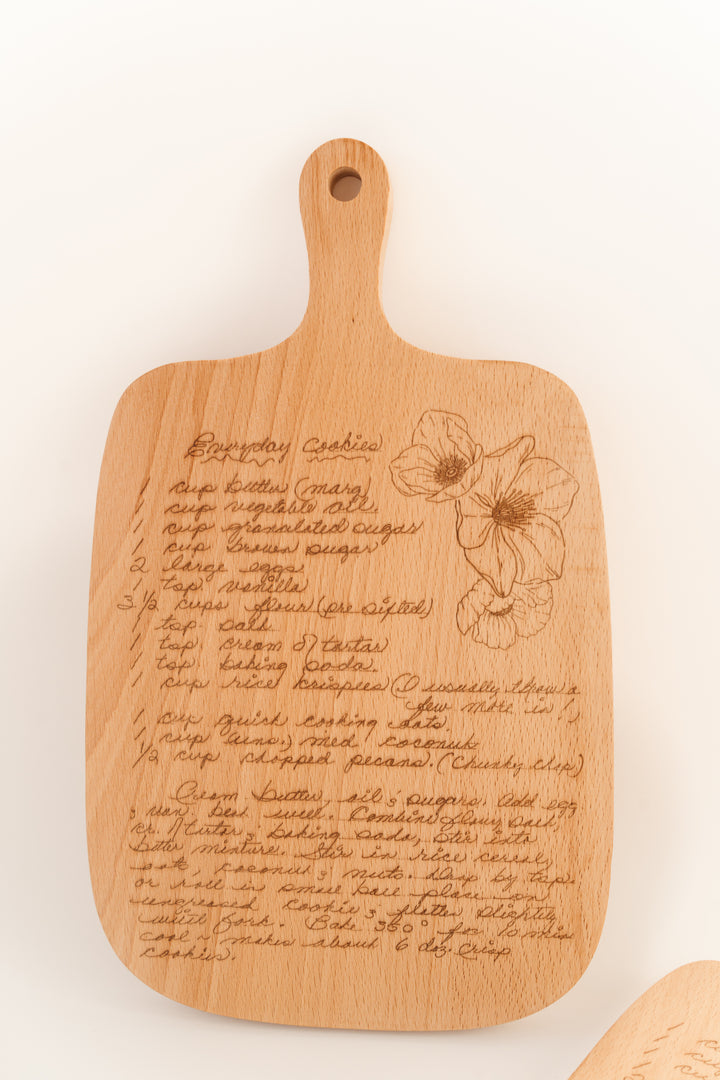 Everyday Cookies
1 cup butter (marg)
1 cup vegetable oil.
1 cup granulated sugar
1 cup brown sugar
2 large eggs
1 tsp vanilla
3 1/2 cups flour (pre sifted)
1 tsp salt
1 tsp cream of tartar
1 tsp. baking soda.
1 cup rice krispies (I usually throw a
few more in!)
1 cup quick cooking oats.
1 cup (uns.) med coconut
1/2 cup chopped pecans. (Chunky chop)
Cream butter, oil & sugars. Add egg
& van. beat well. Combine flour, salt,
cr. of tartar & baking soda, stir into
butter mixture. Stir in rice cereal,
oats, coconut & nuts. Drop by tsp.
or roll in small ball place on
ungreased cookie & flatten slightly
with fork. Bake 350° for 10 min
cool ~ makes about 6 doz. crisp
cookies.